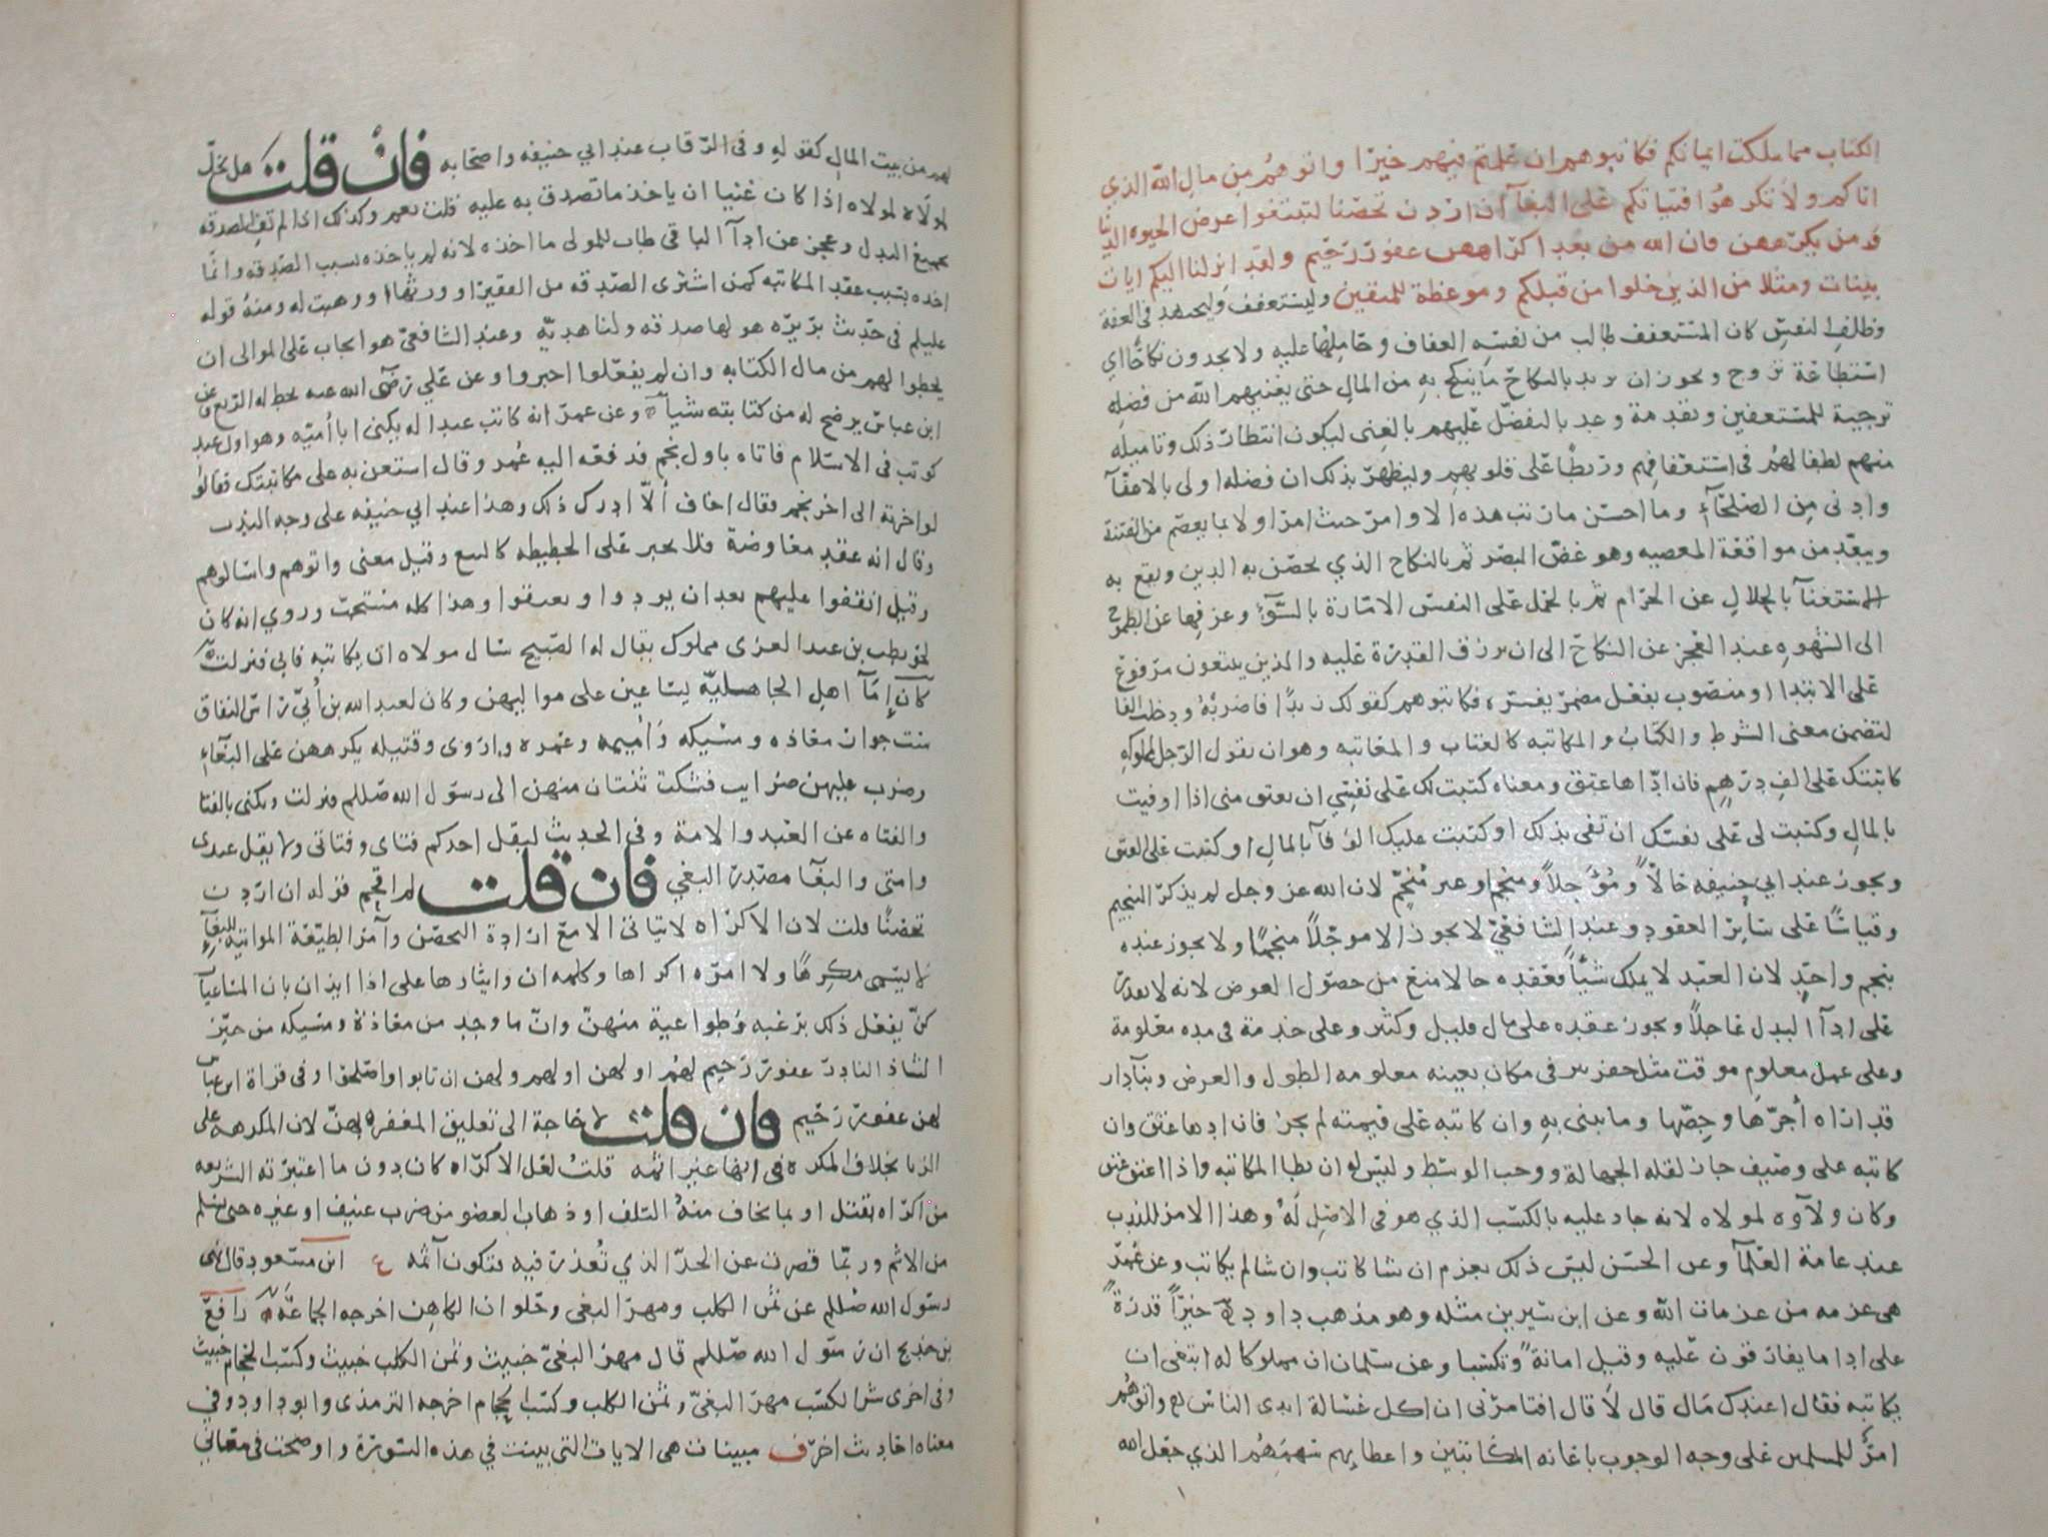 الكتاب مما ملكت ايمانكم فكاتبوهم ان علمتم فيهم خيرا واتوهم من مال الله الذي
اتاكم ولا تكرهوا فتياتكم على البغآ ان اردن تحصنا لتبتغوا عرض الحيوه الدنيا
ومن يكرههن فان الله من بعد اكراههن غفور رحيم ولقد انزلنا اليكم ايات
بينات ومثلا من الذين خلوا من قبلكم وموعظة للمتقين وليستعفف وليجتهد في العفة
وظلف النفس كان المستعفف طالب من نفسه العفاف وحاملها عليه ولا يجدون نكاحا اي
استطاعة تزوج ويجوز ان يريد بالنكاح ما ينكح به من المال حتى يغنيهم الله من فضله
ترجية للمستعففين وتقدمة وعد بالتفضل عليهم بالغنى ليكون انتظار ذلك وتاميله
منهم لطفا لهم في استعفافهم وربطا على قلوبهم وليظهر بذلك ان فضله اولى بالاعفآ
وادنى من الصلحآء وما احسن ما رتب هذه الاوامر حيث امر اولا بما يعصم من الفتنة
ويبعد من مواقعة المعصيه وهو غض البصر ثم بالنكاح الذي يحصن به الدين ويقع به
الاستغنآ بالحلال عن الحرام ثم بالحمل على النفس الامارة بالسوٓء وعزفها عن الطموح
الى الشهوه عند العجز عن النكاح الى ان يرزق القدرة عليه والذين يبتغون مرفوع
على الابتدا او منصوب بفعل مضمر يفسره فكاتبوهم كقولك زيدا فاضربه ودخلت الفا
لتضمن معنى الشرط والكتاب والمكاتبه كالعتاب والمعاتبه وهو ان يقول الرجل لمملوكه
كاتبتك على الف درهم فان اداها عتق ومعناه كتبت لك على نفسي ان تعتق مني اذا اوفيت
بالمال وكتبت لي على نفسك ان تفي بذلك او كتبت عليك الوفآ بالمال او كتبت على العتق
ويجوز عند ابي حنيفه حالا ومؤجلا ومنجما وغير منجم لان الله عز وجل لم يذكر التنجيم
وقياسا على سائر العقود وعند الشافعي لا يجوز الا موجلا منجما ولا يجوز عنده
بنجم واحد لان العبد لا يملك شيا فعقده حالا منع من حصول العوض لانه لا يقدر
على ادآ البدل عاجلا ويجوز عقده على مال قليل وكثير وعلى خدمة في مده معلومة
وعلى عمل معلوم موقت مثل حفر بير في مكان بعينه معلومه الطول والعرض وبنآ دار
قد اراه أجرها وجصها وما يبنى به وان كاتبه على قيمته لم يجز فان اداها عتق وان
كاتبه على وصيف جاز لقله الجهالة ووجب الوسط وليس له ان يطا المكاتبه واذا اعتق عتق
وكان ولآوه لمولاه لانه جاد عليه بالكسب الذي هو في الاصل له وهذا الامر للندب
عند عامة العلمآ وعن الحسن ليس ذلك بعزم ان شا كاتب وان شا لم يكاتب وعن عمر
هي عزمه من عزمات الله وعن ابن سيرين مثله وهو مذهب داود خيرا قدرة
على ادا ما يفارقون عليه وقيل امانة وتكسبا وعن سلمان ان مملوكا له ابتغى ان
يكاتبه فقال اعندك مال قال لا قال افتامرني ان اكل غسالة ايدي الناس واتوهم
امر للمسلمين على وجه الوجوب باعانه المكاتبين واعطايهم سهمهم الذي جعل الله
لهم من بيت المال كقوله وفي الرقاب عند ابي حنيفه واصحابه فان قلت هل يحل
لمولاه اذا كان غنيا ان ياخذ ما تصدق به عليه قلت نعم وكذلك اذا لم تف الصدقه
بجميع البدل وعجز عن ادآ الباقي طاب للمولى ما اخذه لانه لم ياخذه بسبب الصدقه وانما
اخذه بسبب عقد المكاتبه كمن اشترى الصدقه من الفقير او ورثها او وهبت له ومنه قوله
عليلم في حديث بريره هو لها صدقه ولنا هديه وعند الشافعي هو ايجاب على الموالى ان
يحطوا لهم من مال الكتابه وان لم يفعلوا اجبروا وعن علي رضي الله عنه يحط له الربع وعن
ابن عباس يرضخ له من كتابته شيا وعن عمر انه كاتب عبدا له يكنى ابا أميه وهو اول عبد
كوتب في الاسلام فاتاه باول نجم فدفعه اليه عمر وقال استعن به على مكاتبتك فقال
لو اخرته الى اخر نجم فقال اخاف ألا ادرك ذلك وهذا عند ابي حنيفه على وجه الندب
وقال انه عقد معاوضة فلا يجبر على الحطيطه كالبيع وقيل معنى واتوهم واسالوهم
وقيل انفقوا عليهم بعد ان يودوا ويعتقوا وهذا كله مستحب وروي انه كان
لحويطب بن عبد العزى مملوك يقال له الصبيح سال مولاه ان يكاتبه فابى فنزلت
كان إمآ اهل الجاهليه يساعين على مواليهن وكان لعبد الله بن أبي راس النفاق
ست جوار معاذه ومسيكه وأميمه وعمره واروى وقتيله يكرههن على البغآء
وضرب عليهن ضرايب فشكت ثنتان منهن الى رسول الله صللم فنزلت ويكنى بالفتا
والفتاه عن العبد والامة وفي الحديث ليقل احدكم فتاى وفتاتى ولا يقل عبدى
وامتى والبغآ مصدر البغي فان قلت لم اقحم قوله ان اردن
تحصنا قلت لان الاكراه لا يتاتى الا مع ارادة التحصن وآمر الطيعة المواتيه للبغآء
لا يسمى مكرها ولا امره اكراها وكلمه ان وايثارها على اذا ايذان بان المساعيات
كن يفعلن ذلك برغبه وطواعية منهن وان ما وجد من معاذة ومسيكه من حيز
الشاذ النادر غفور رحيم لهم او لهن او لهم ولهن ان تابوا واصلحوا وفي قراة ابن عباس
لهن غفور رحيم فان قلت لا حاجة الى تعليق المغفره بهن لان المكرهه على
الزنا بخلاف المكره في انها غير اثمه قلت لعل الاكراه كان دون ما اعتبرته الشريعه
من اكراه بقتل او بما يخاف منه التلف او ذهاب العضو من ضرب عنيف او غيره حتى يسلم
من الاثم وربما قصرت عن الحد الذي تعذر فيه فتكون آثمه ع ابن مسعود قال نهى
رسول الله صللم عن ثمن الكلب ومهر البغي وحلوان الكاهن اخرجه الجماعه رافع
بن خديج ان رسول الله صللم قال مهر البغي خبيث وثمن الكلب خبيث وكسب الحجام خبيث
وفي اخرى شر الكسب مهر البغي وثمن الكلب وكسب الحجام اخرجه الترمذى وابو داود وفي
معناه احاديث اخر ف مبينات هي الايات التي بينت في هذه السورة واوضحت في معاني